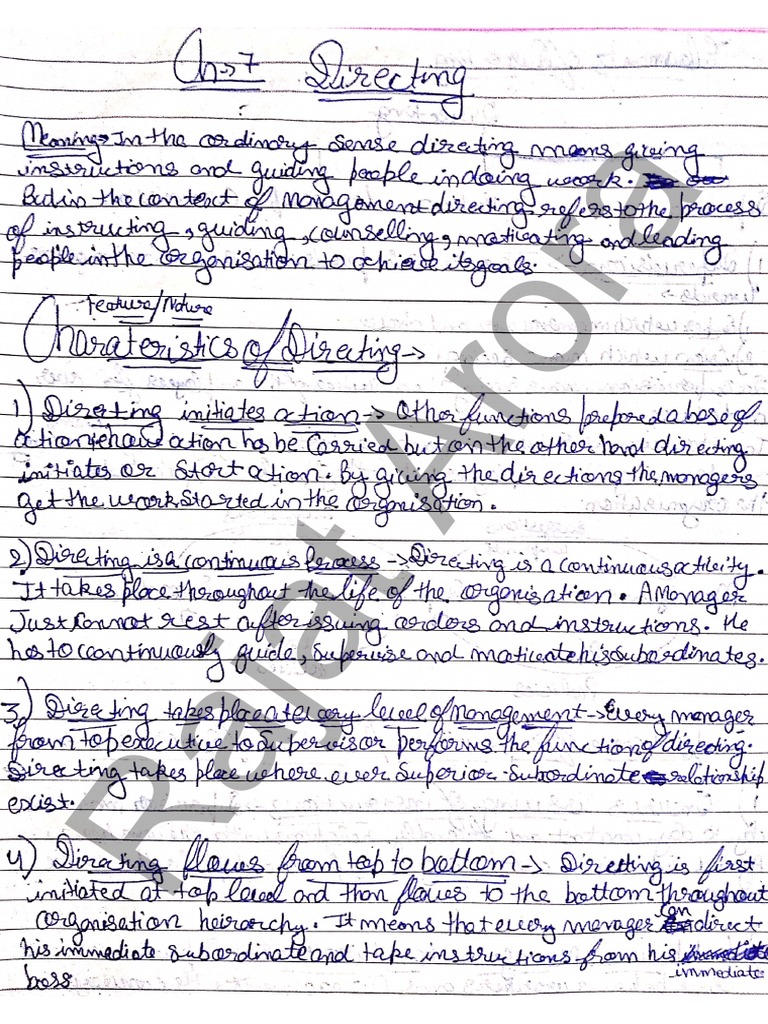 Ch→7 Directing
Meaning→ In the ordinary sense directing means giving
instructions and guiding people in doing work.
But in the context of management directing refers to the process
of instructing, guiding, counselling, motivating and leading
people in the organisation to achieve its goals.
Feature/Nature
Charateristics of Directing→
1) Directing initiates action → Other functions prepared a base of
action ehave action has be carried but on the other hand directing
initiates or start action. By giving the directions the managers
get the work started in the organisation.
2) Directing is a continuous process → Directing is a continuous activity.
It takes place throughout the life of the organisation. A Manager
Just cannot rest after issuing orders and instructions. He
has to continuously guide, supervise and motivate his subordinates.
3) Directing takes place at every level of Management → every manager
from top executive to supervisor performs the function of directing.
Directing takes place where ever superior-subordinate relationship
exist.
4) Directing flows from top to bottom → Directting is first
initiated at top level and than flows to the bottom throughout
organisation heirarchy. It means that every manager can direct
his immediate subordinate and take instructions from his immediate
boss
Rajat Arora